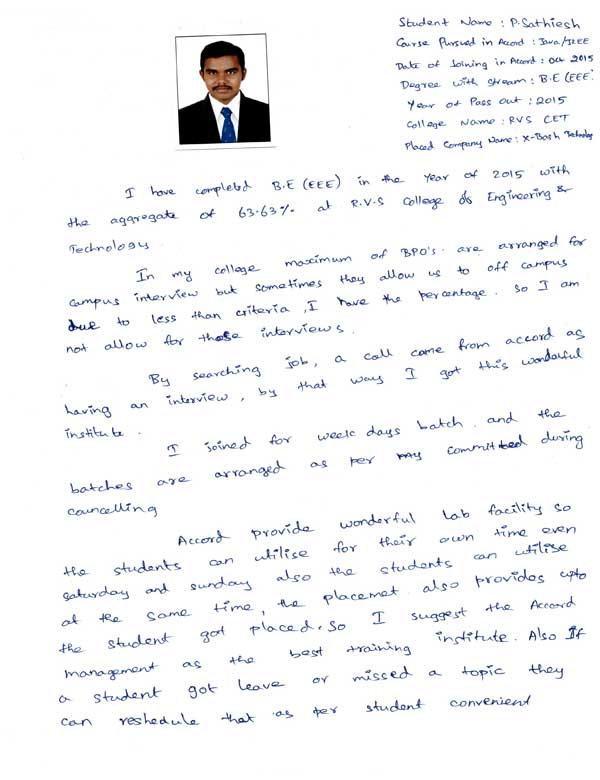 Student Name : P. Sathiesh
Course Pursued in Accord : Java/J2EE
Date of Joining in Accord : Oct 2015
Degree with Stream : B.E (EEE)
Year of Pass Out : 2015
College Name : RVS CET
Placed Company Name : X-Bosh Technology
I have completed B.E (EEE) in the year of 2015 with
the aggregate of 63.63% at R.V.S College of Engineering &
Technology.
In my college maximum of BPO's are arranged for
campus interview but sometimes they allow us to off campus
due to less than criteria, I have the percentage. So I am
not allow for those interviews.
By searching job, a call came from accord as
having an interview, by that way I got this wonderful
institute.
I joined for week days batch. and the
batches are arranged as per my committed during
councelling
Accord provide wonderful lab facility so
the students can utilise for their own time even
saturday and sunday also the students can utilise
at the same time, the placemet also provides upto
the student got placed. So I suggest the Accord
management as the best training institute. Also If
a student got leave or missed a topic they
can reshedule that as per student convenient